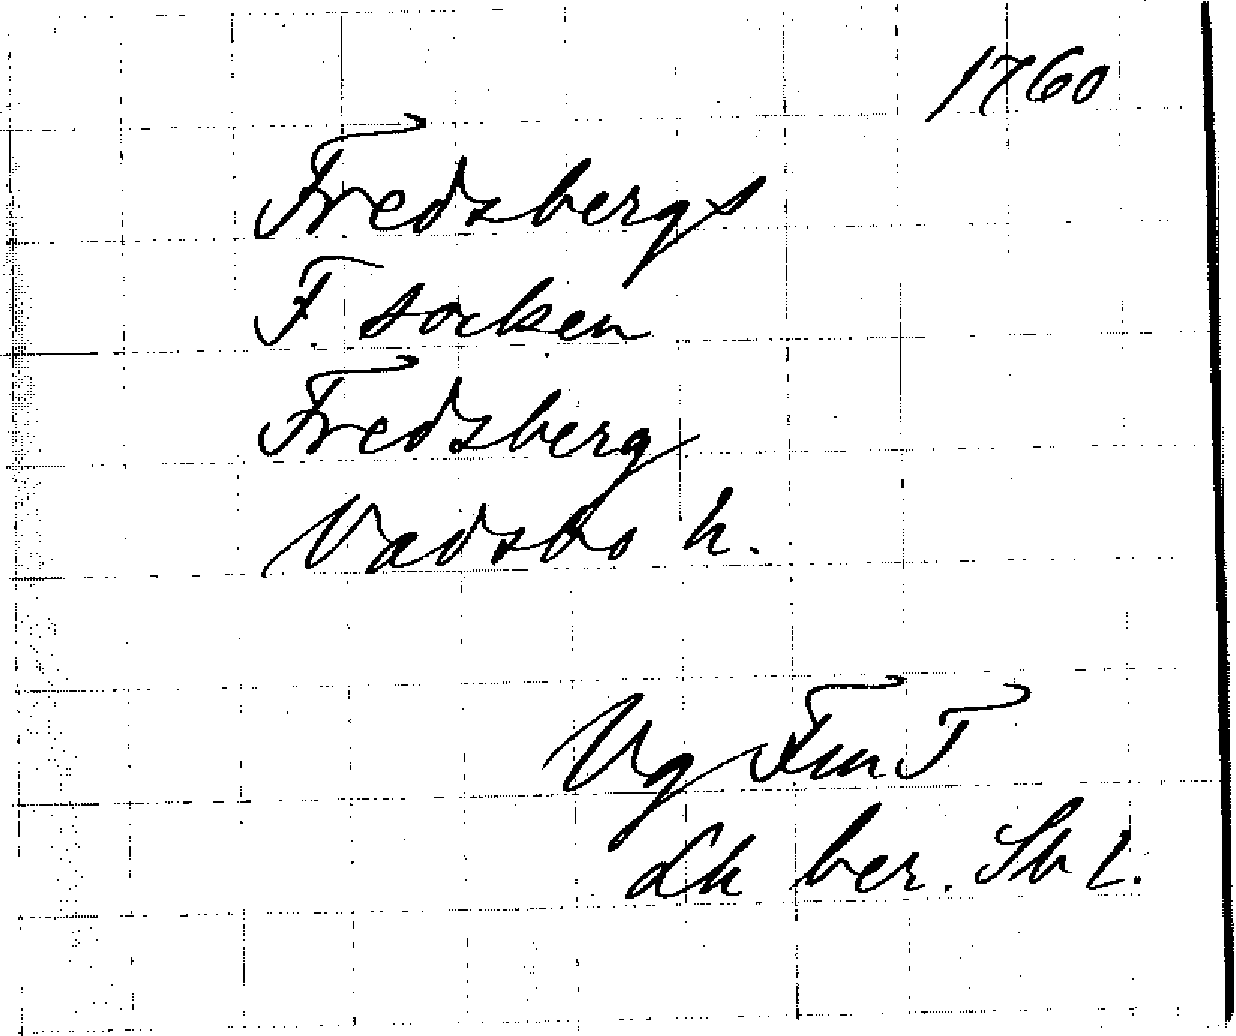 1760
Fredsbergs
F. socken
Fredsberg
Vadsbo h.
Vg Fm T
Lh ber. Sk L.